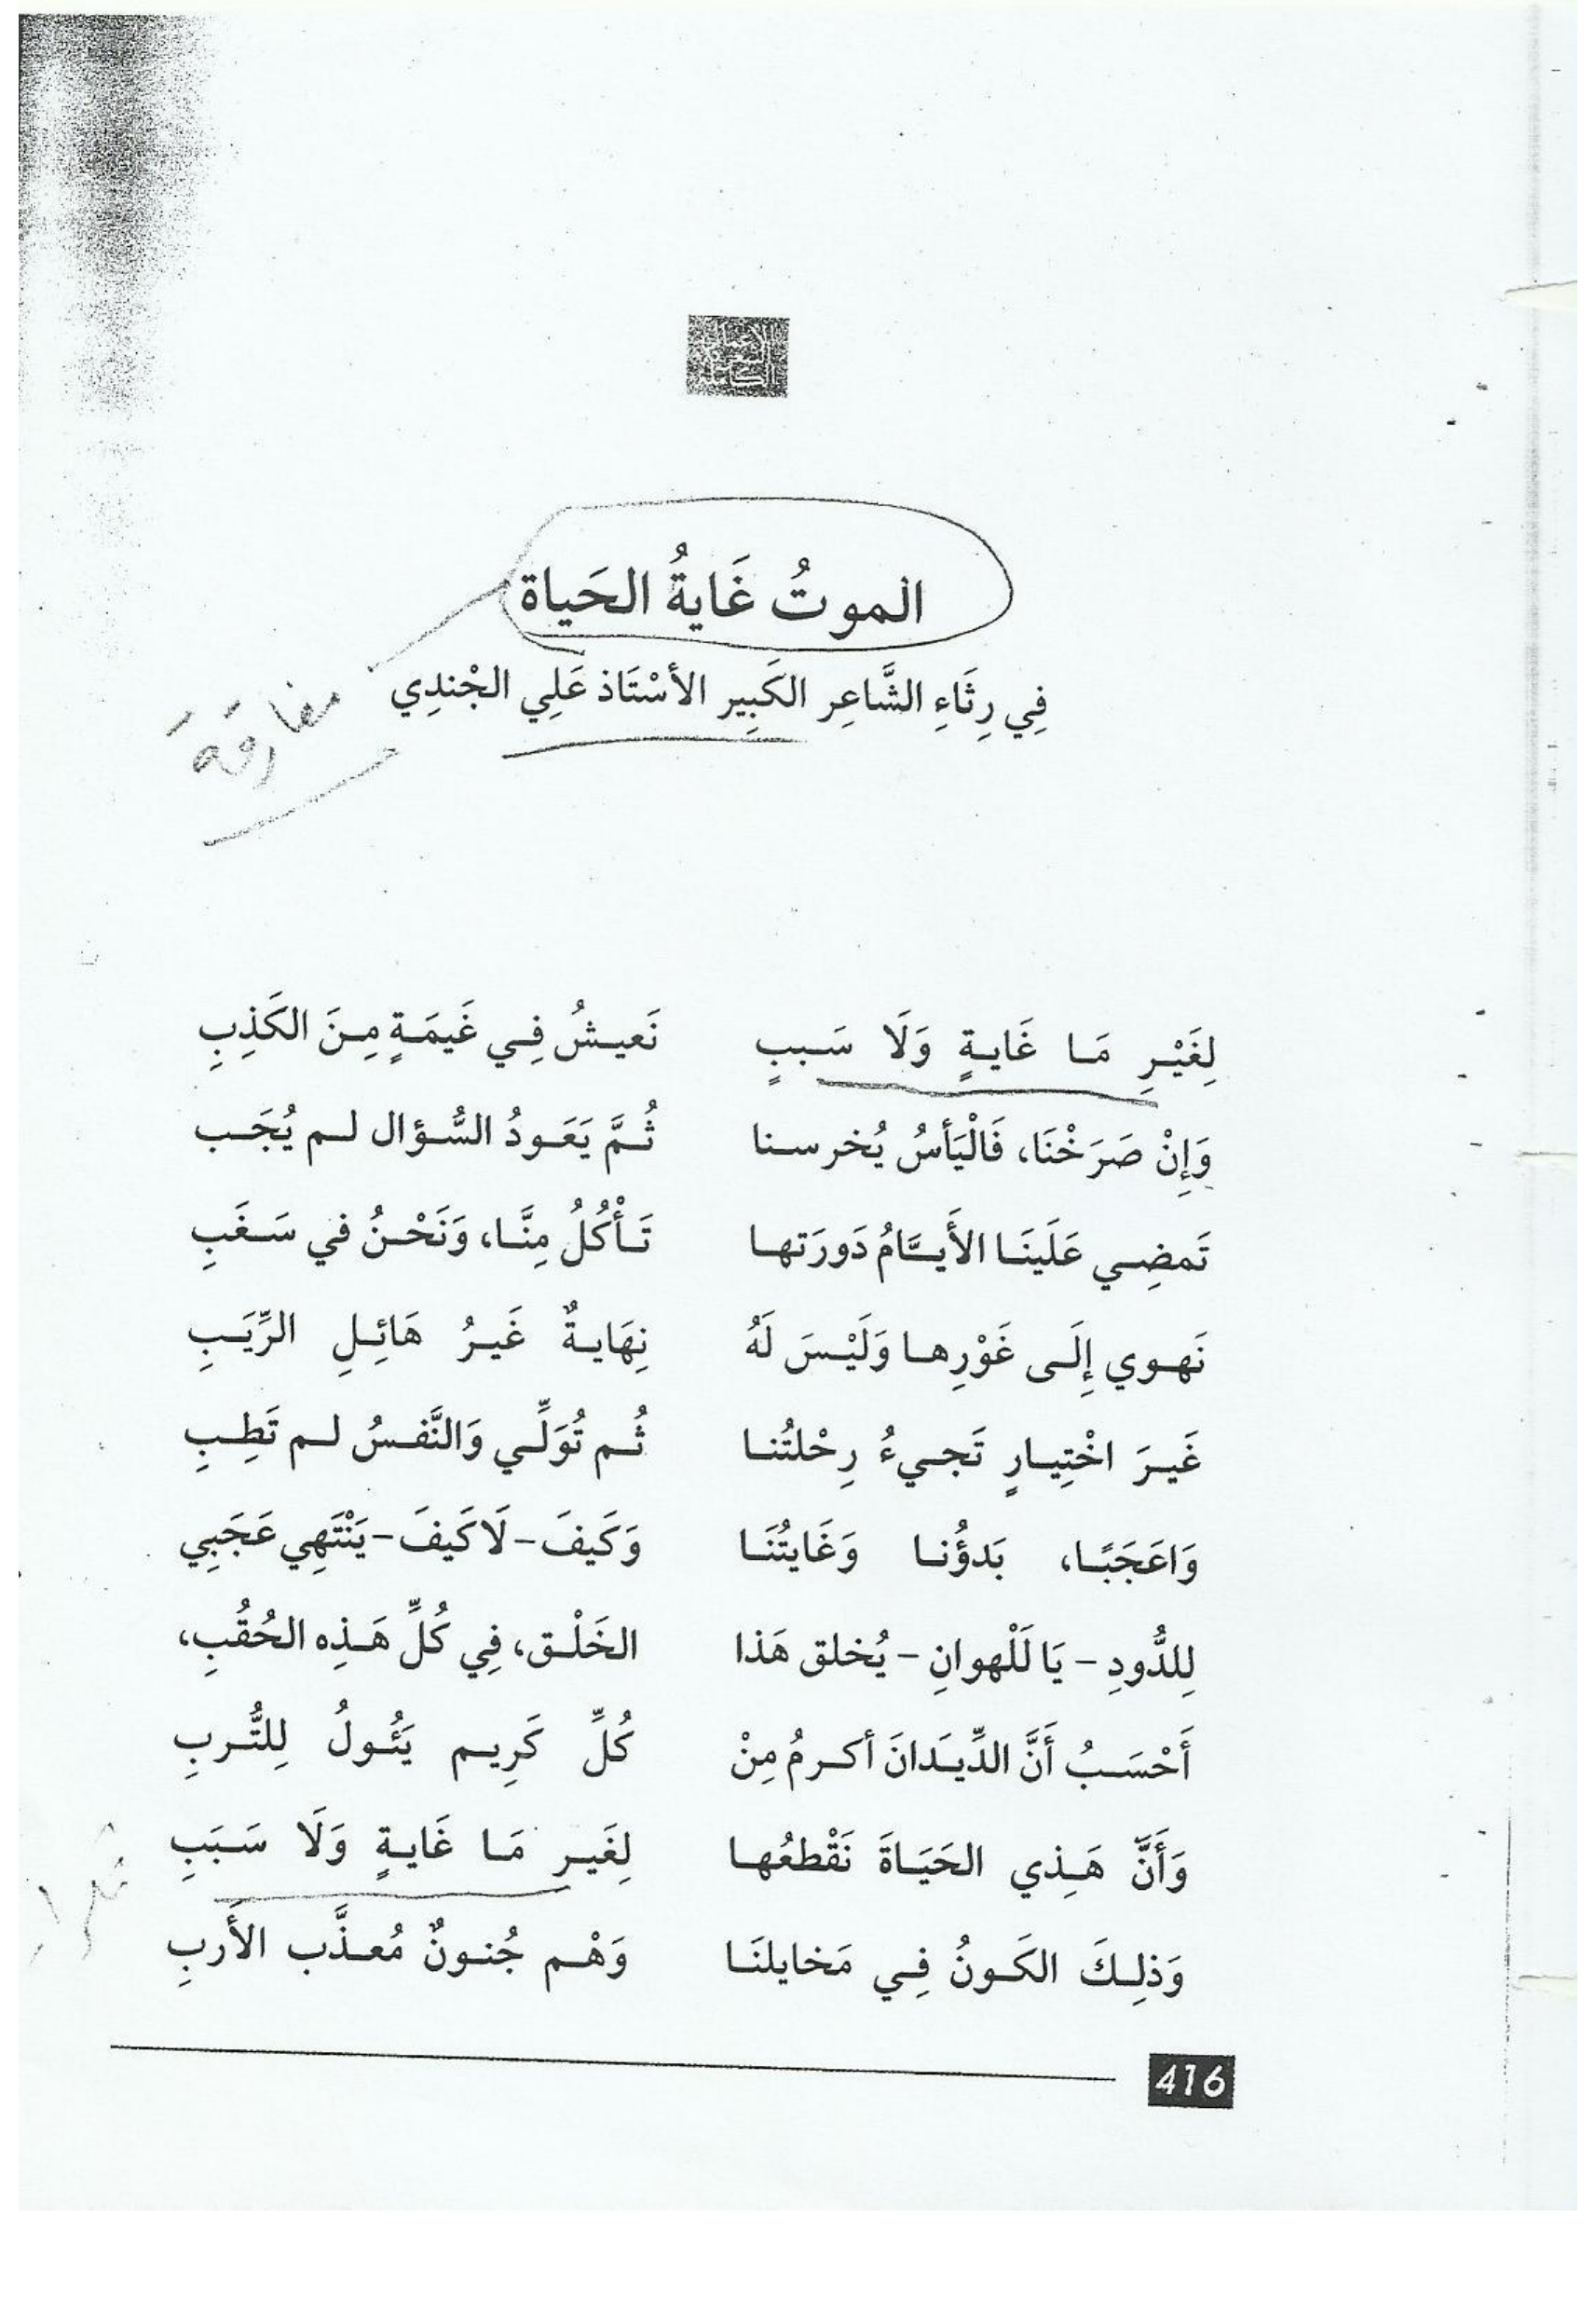 الموتُ غَايةُ الحَياة
فِي رِثَاءِ الشَّاعِر الكَبِير الأسْتَاذ عَلِي الجْندِي
مفارقة
لِغَيْرِ مَا غَايةٍ وَلَا سَببٍ نَعيشُ فِي غَيمَةٍ مِنَ الكَذِبِ
وَإِنْ صَرَخْنَا، فَالْيَأسُ يُخرسنا ثُمَّ يَعَودُ السُّؤال لم يُجَب
تَمضِي عَلَينَا الأَيَّامُ دَورَتها تَأْكُلُ مِنَّا، وَنَحْنُ في سَغَبِ
نَهوي إِلَى غَوْرِها وَلَيْسَ لَهُ نِهَايةٌ غَيرُ هَائِلِ الرِّيَبِ
غَيرَ اخْتِيارٍ تَجيءُ رِحْلتُنا ثُم تُوَلِّي وَالنَّفسُ لم تَطِبِ
وَاعَجَبًا، بَدؤُنا وَغَايتُنَا وَكَيفَ - لَا كَيفَ - يَنْتَهِي عَجَبِي
لِلدُّودِ - يَا لَلْهوانِ - يُخلق هَذا الخَلْق، فِي كُلِّ هَذِه الحُقُبِ،
أَحْسَبُ أَنَّ الدِّيدَانَ أكرمُ مِنْ كُلِّ كَرِيم يَئُولُ لِلتُّربِ
وَأَنَّ هَذِي الحَيَاةَ نَقْطعُها لِغَيرِ مَا غَايةٍ وَلَا سَبَبِ
وَذلِكَ الكَونُ فِي مَخايلنَا وَهْم جُنونٌ مُعذَّب الأَربِ
416